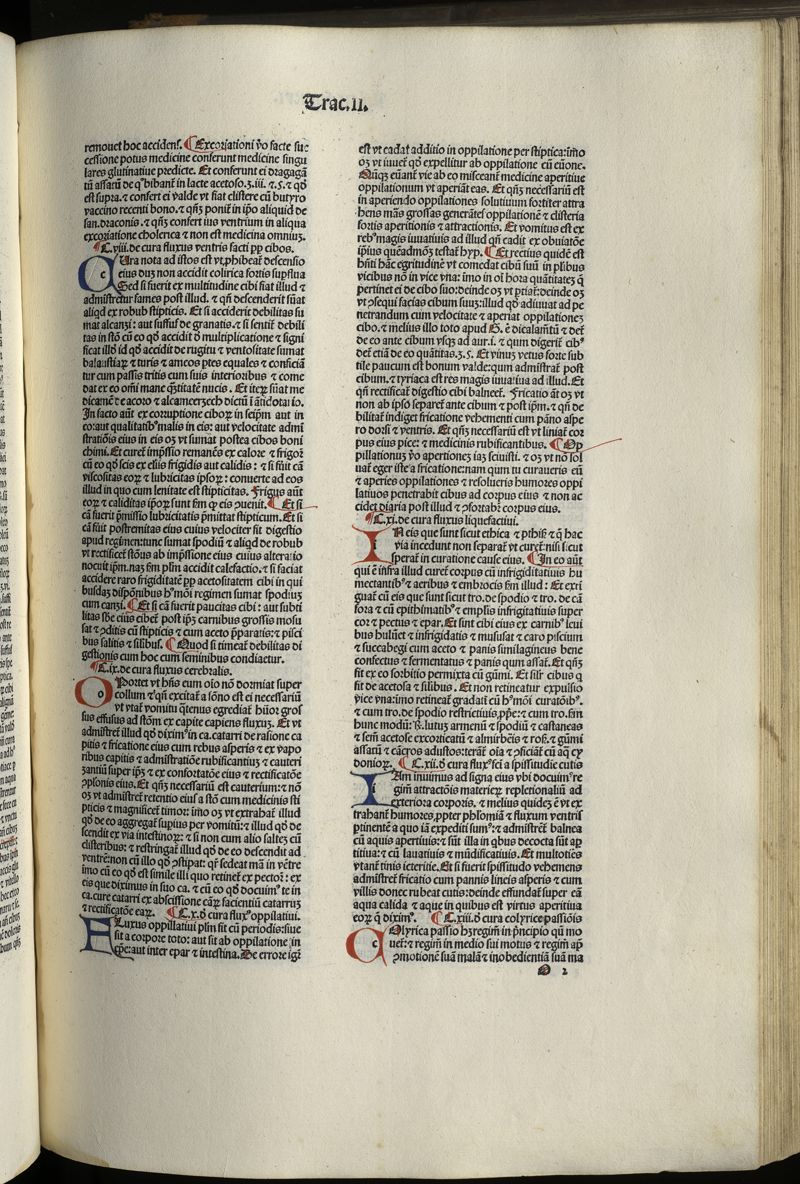 Trac.II.
remouet hoc accidens. Excoriationi v̄o facte suc
cessione potus medicine conferunt medicine singu
lares glutinatiue predicte. Et conferunt ei dragagā
tū assatū de quo bibant in lacte acetoso.ʒ.iii. ⁊.5.⁊ qđ
est supra.⁊ confert ei valde vt fiat clistere cū butyro
vaccino recenti bono.⁊ qñꝫ ponit̄ in ip̄o aliquid de
san.draconis.⁊ qñꝫ confert ius ventrium in aliqua
excoriatione cholerica ⁊ non est medicina omniuꝫ.
C.viii.de cura fluxus ventris facti pp cibos.
CUra nota ad istos est vt ꝓhibeat̄ descensio
eius duꝫ non accidit colirica fortis supflua
Sed si fuerit ex multitudine cibi fiat illud ⁊
admistret̄ur fames post illud. ⁊ qñ descenderit sūat
aliqd ex robub stipticis. Et si acciderit debilitas su
mat alcanzi: aut suffuf de granatis.⁊ si sentit̄ debili
tas in stō cū eo qđ accidit ō multiplicatione ⁊ signi
ficat illđ id qđ accidit de rugitu ⁊ ventositate sumat
balaustiaꝝ ⁊ turis ⁊ ameos ptes equales ⁊ conficiā
tur cum passis tritis cum suis interioribus ⁊ come
dat ex eo om̄i mane q̄ntitatē nucis. Et iteꝝ sūat me
dicamē de acoro ⁊ alcameerzech dictū ī ātidotario.
In facto aūt ex corruptione ciboꝝ in seip̄m aut in
eo:aut qualitatibꝰ malis in eis: aut velocitate admi
strationis eius in eis oꝫ vt sumat postea cibos boni
chimi. Et curet̄ imp̄ssio remanēs ex calore ⁊ frigorꝫ
cū eo qđ scis ex eliis frigidis aut calidis : ⁊ si fūit cā
viscositas eoꝝ ⁊ lubricitas ipsoꝝ: conuerte ad eos
illud in quo cum lenitate est stipticitas. Frigus aūt
eoꝝ ⁊ caliditas ip̄oꝝ sunt fm̄ ꝙ eis ꝓuenit. Et si
cā fuerit p̄missio lubricitatis p̄mittat stipticum. Et si
cā fūit postremitas eius cuius velociter fit digestio
apud regimen:tunc sumat spodiū ⁊ aliqđ de robub
vt rectificet̄ stōus ab imp̄ssione eius cuius alteratio
nocuit ip̄m.naꝫ fm̄ plm̄ accidit calefactio.⁊ si faciat
accidere raro frigiditatē pp acetositatem cibi in qui
busdaꝫ dispōnibus hꝰmōi regimen sumat spodiuꝫ
cum canzi. Et si cā fuerit paucitas cibi : aut subti
litas sbe eius cibet̄ post ip̄ꝫ carnibus grossis mosu
sat ⁊ ꝯditis cū stipticis ⁊ cum aceto p̄paratis:⁊ pisci
bus salitis ⁊ silibus. Quod si timeat̄ debilitas di
gestionis cum hoc cum seminibus condiaetur.
C.ix.de cura fluxus cerebralis.
OPortet vt hñis cum oīo nō dormiat super
collum ⁊ qñ excitat̄ a sōno est ei necessariū
vt vtat̄ vomitu q̄tenus egrediat̄ hūor gros
sus effusus ad stōm ex capite capiens fluxuꝫ. Et vt
admistret̄ illud qđ diximꝰ in ca.catarri de rasione ca
pitis ⁊ fricatione eius cum rebus asperis ⁊ ex vapo
ribus capitis ⁊ admistratiōe rubificantiuꝫ ⁊ cauteri
zantiū super ip̄ꝫ ⁊ ex confortatōe eius ⁊ rectificatōe
ꝯplonis eius. Et qñꝫ necessariū est cauterium:⁊ nō
oꝫ vt admistret̄ retentio eius a stō cum medicinis sti
pticis ⁊ magnificet̄ timor: imo oꝫ vt extrahat̄ illud
qđ de eo aggregat̄ supius per vomitū:⁊ illud qđ de
scendit ex via intestinoꝝ: ⁊ si non cum alio saltez cū
clisteribus: ⁊ restringat̄ illud qđ de eo descendit ad
ventrē:non cū illo qđ ꝯstipat: qr̄ sedeat mā in vētre
imo cū eo qđ est simile illi quo retinet̄ ex pectorꝫ: ex
eis que diximus in suo ca. ⁊ cū eo qđ docuimꝰ te in
ca.cure catarri ex abscissione cāꝝ facientiū catarruꝫ
⁊ rectificatōe eaꝝ. C.x.đ cura fluxꝰ oppilatiui.
FLuxus oppillatiui plm̄ fit cū periodis:siue
sit a corpore toto: aut sit ab oppilatione in
epe:aut inter epar ⁊ intestina.De errore igr̄
est vt cadat̄ additio in oppilatione per stiptica:imo
oꝫ vt iuuet̄ qđ expellitur ab oppilatione cū cūone.
Qñꝫ euant̄ vie ab eo misceant̄ medicine aperitiue
oppilationum vt aperiāt eas. Et qñꝫ necessariū est
in aperiendo oppilationes solutiuum fortiter attra
hens māꝫ grossas generātes oppilationē ⁊ clisteria
fortis aperitionis ⁊ attractionis. Et vomitus est ex
rebꝰ magis iuuatiuis ad illud qñ cadit ex obuiatōe
ip̄ius quēadmōꝫ testat̄ hyp. Et rectius quidē est
hn̄ti hāc egritudinē vt comedat cibū suū in plibus
vicibus nō in vice vna: imo in oī hora quātitateꝫ q̄
pertinet ei de cibo suo:deinde oꝫ vt ptiat̄:deinde oꝫ
vt ꝯsequi facias cibum suuꝫ:illud qđ adiuuat ad pe
netrandum cum velocitate ⁊ aperiat oppilationeꝫ
cibo. ⁊ melius illo toto apud G. ē dicalamītū ⁊ det̄
de eo ante cibum vsqꝫ ad aur.i. ⁊ qum digerit̄ cibꝰ
det̄ etiā de eo quātitas.ʒ.5. Et vinuꝫ vetus forte sub
tile paucum est bonum valde:qum admistrat̄ post
cibum.⁊ tyriaca est res magis iuuatiua ad illud. Et
qñ rectificat̄ digestio cibi balneet̄. Fricatio āt oꝫ vt
non ab ip̄so separet̄ ante cibum ⁊ post ip̄m. ⁊ qñ de
bilitat̄ indiget fricatione vehementi cum pāno aspe
ro dorsi ⁊ ventris. Et qñꝫ necessariū est vt liniat̄ cor
pus eius pice: ⁊ medicinis rubificantibus. Op
pillationuꝫ v̄o apertiones iaꝫ sciuisti. ⁊ oꝫ vt nō sol
uat̄ eger iste a fricatione:nam qum tu curaueris eū
⁊ aperies oppilationes ⁊ resolueris humores oppi
latiuos penetrabit cibus ad corpus eius ⁊ non ac
cidet diaria post illud ⁊ ꝯfortabit̄ corpus eius.
C.xi.de cura fluxus liquefactiui.
IN eis que sunt sicut ethica ⁊ pthisis ⁊ q̄ hac
via incedunt non separat̄ vt curet̄:nisi sicut
sperat̄ in curatione cause eius. In eo aūt
qui ē infra illud curet̄ corpus cū infrigidatiuis hu
mectantibꝰ ⁊ aeribus ⁊ embrocis fm̄ illud : Et extri
guat̄ cū eis que sunt sicut tro.de spodio ⁊ tro. de cā
fora ⁊ cū epithimatibꝰ ⁊ emplis infrigitatiuis super
cor ⁊ pectus ⁊ epar. Et sint cibi eius ex carnibꝰ leui
bus hulūet ⁊ infrigidatis ⁊ mususat ⁊ caro pisciūm
⁊ succabegi cum aceto ⁊ panis similagineus bene
confectus ⁊ fermentatus ⁊ panis qum assat̄. Et qñꝫ
fit ex eo sorbitio permixta cū gūmi. Et silr̄ cibus q̄
fit de acetosa ⁊ silibus. Et non retineatur expulsio
vice vna:imo retineat̄ gradatī cū hꝰmōi curatōibꝰ.
⁊ cum tro.de spodio restrictiuis ꝓprie:⁊ cum tro.fm̄
hunc modū:℞.lutuꝫ armenū ⁊ spodiū ⁊ castaneas
⁊ sem̄ acetose excorticatū ⁊ almirbētis ⁊ roꝫ.⁊ gūmi
assatū ⁊ cācros adustos:terāt̄ oīa ⁊ ꝯficiāt̄ cū aq̄ cy
donioꝝ. C.xii.đ cura fluxꝰ sci a spissitudie cutis
IAm inuimus ad signa eius vbi docuimꝰ re
gim̄ attractōis materieꝝ repletionaliū ad
exteriora corporis, ⁊ melius quideꝫ ē vt ex
trahant̄ humores,ppter phlomiā ⁊ fluxum ventris
ptinentē a quo iā expediti sumꝰ:⁊ admistret̄ balnea
cū aquis apertiuis:⁊ sūt illa in qbus decocta sūt ap
titiua:⁊ cū lauatiuis ⁊ mūdificatiuis. Et multotiēs
vtant̄ tinis icteritie. Et si fuerit spissitudo vehemens
admistret̄ fricatio cum pannis lineis asperis ⁊ cum
villis donec rubeat cutis:deinde effundat̄ super eā
aqua calida ⁊ aque in quibus est virtus aperitiua
eoꝝ q̄ diximꝰ. C.xiii.đ cura colyrice passiōis
COlyrica passio hꝫ regim̄ in p̄ncipio qū mo
uet̄:⁊ regim̄ in medio sui motus ⁊ regim̄ ap̄
ꝯmotionē suā malā ⁊ inobedientiā suā ma
O 2